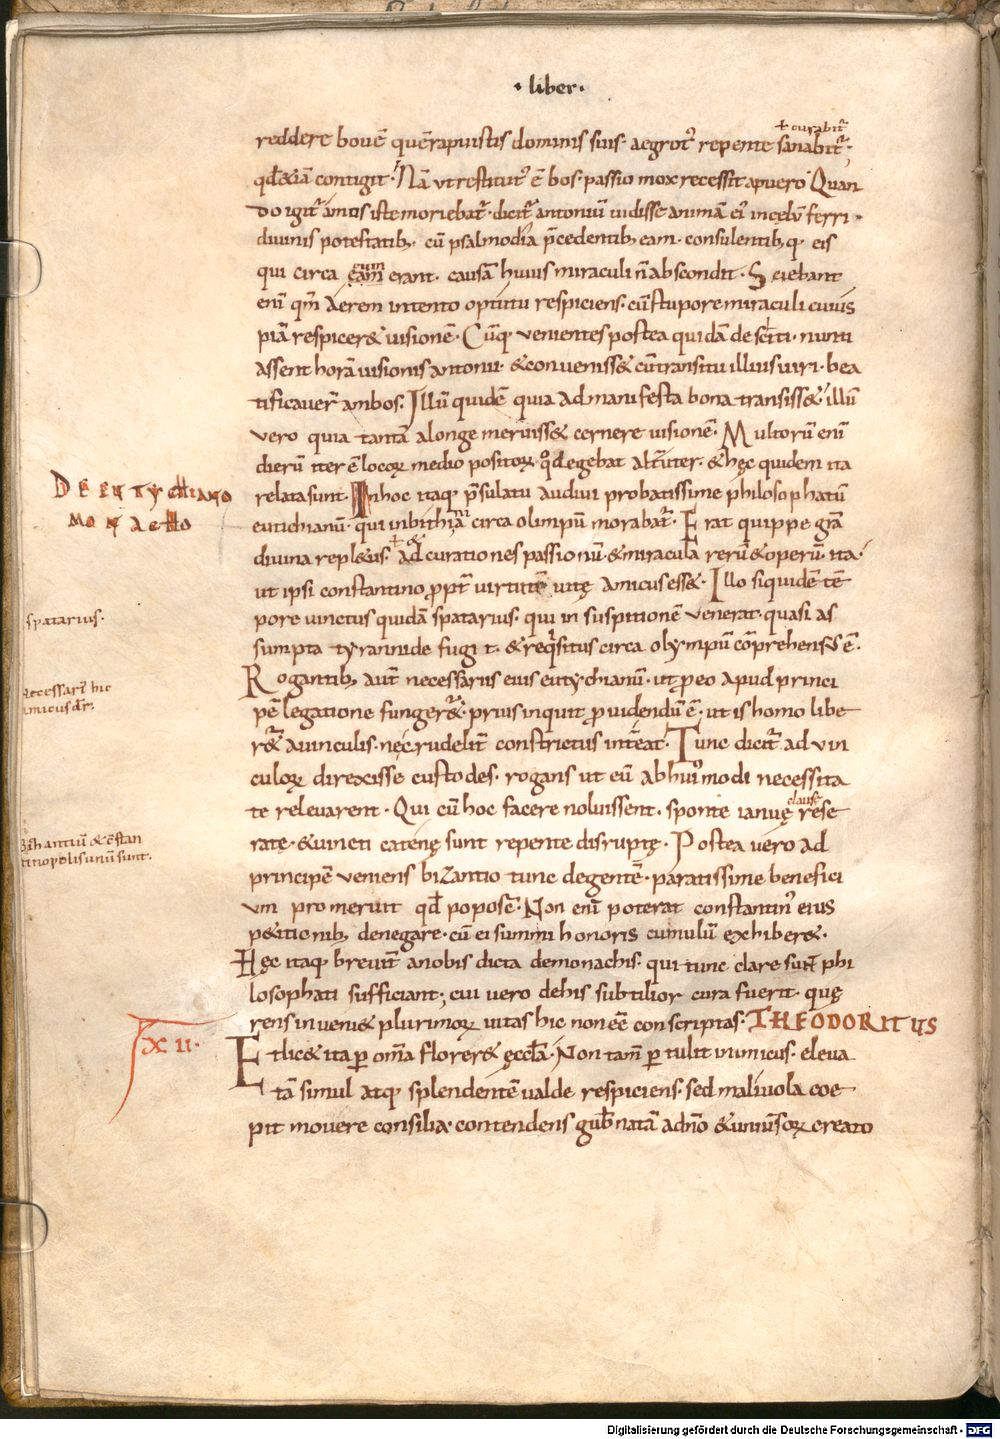 · liber ·
ł curabit᷑
reddere bouē quērapuistis dominis suis· aegrot᷒ repente sanabit᷑·
qđ &iā contigit· Nā ut restitut᷒ ē bos· passio mox recessit apuero· Quan
do igit᷑ āmis iste moriebat᷑· dicit᷑ antoniū uidisse animā ei᷒ incęlū ferri·
diuinis potestatib; cū psalmodia p̄cedentib; eam· consulentib; q· eis
cum
qui circa eam erant· causā huius miraculi n̄ abscondit· Sciebant
enī qm̄ aerem intento optutu respiciens· cū stupore miraculi cuius
piā respicer& uisionē· Cūq· uenientes postea quidā desciti· nunti
assent horā uisionis antonii· & conueniss& cū transitu illius uiri· bea
tificauer̄ ambos· Illū quidē quia ad manifesta bona transiss&· illū
uero quia tantā alonge meruiss& cernere uisionē· Multorū enī
dierū iter ē locoꝝ medio positoꝝ q̄ degebat alt̄ut̄er· & hęc quidem ita
DE EUTYCHIANO
MONACHO
relata sunt· In hoc itaq; p̄sulatu audiui probatissime philosophatū
eutichianū· qui inbithiniā circa olimpū morabat᷑· Erat quippe gr̄a
ł &
diuina repl&us· ad curationes passionū· & miracula rerū & operū· ita·
ut ipsi constantino ꝓpt̄ uirtutē uitę amicus ess&· Illo siquidē tē
spatarius·
pore uinctus quidā spatarius· qui in suspitionē uenerat· quasi as
sumpta tyrannide fugit· & req̇situs circa olympū cōprehensus ē·
necessari᷒ hic
amicus dr̄·
Rogantib; aut̄ necessariis eius eutychianū· ut ꝓ eo apud princi
pē legatione funger&᷑· prius inquit ꝓuidendū ē· ut is homo libe
r&᷑ auinculis· nec crudelit̄ constrictus int̄eat· Tunc dicit᷑ ad uin
culoꝝ direxisse custodes· rogans ut eū abhui᷒modi necessita
clause
te releuarent· Qui cū hoc facere noluissent· sponte ianuę rese
Bizhantiū & cōstan
tinopolis unū sunt·
ratę· & uincti catenę sunt repente disruptę· Postea uero ad
principē ueniens bizantio tunc degentē· paratissime benefici
um promeruit qđ poposc̄· Non enī poterat constantin᷒ eius
p&itionib; denegare· cū ei summi honoris cumulū exhiber&·
Hęc itaq; breuit̄ anobis dicta demonachis· qui tunc clare sunt phi
losophati sufficiant; cui uero dehis subtilior cura fuerit· quę
rens inueni& plurimoꝝ uitas hic non eē conscriptas· THEODORITUS
XII·
Et lic& ita ꝑ om̄a florer& ęccl̄a· Non tam̄ ꝑtulit inimicus· eleua
tā simul atq; splendentē ualde respiciens· sed maliuola coe
pit mouere consilia· contendens gub̄natā adn̄o & uniūsoꝝ creato
Digitalisierung gefördert durch die Deutsche Forschungsgemeinschaft - DFG